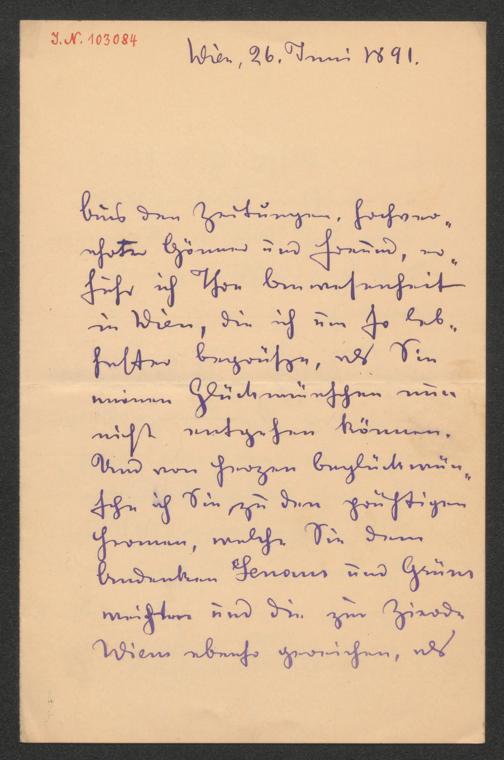 I.N. 103084
Wien, 26. Juni 1891.
Aus den Zeitungen, hochver-
ehrter Gönner und Freund, er-
fuhr ich Ihre Anwesenheit
in Wien, die ich um so leb-
hafter begrüße, als Sie
meinen Glückwünschen nun
nicht entgehen können.
Und von Herzen beglückwün-
sche ich Sie zu den prächtigen
Hermen, welche Sie dem
Andenken Lenaus und Grüns
weihten und die zur Zierde
Wiens ebenso gereichen, als